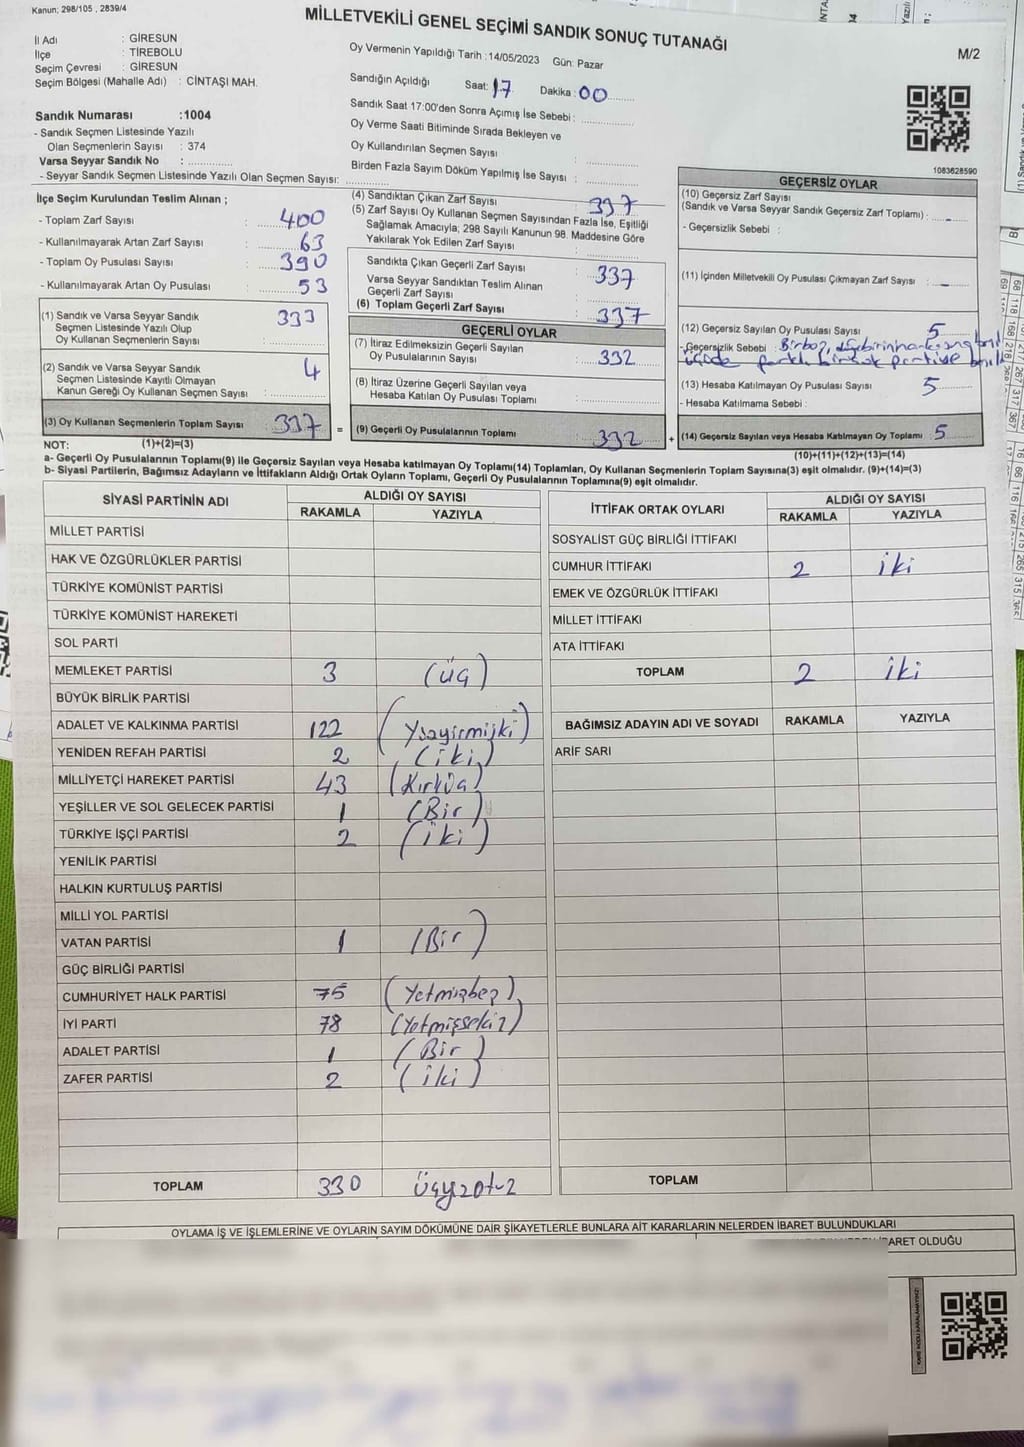 Kanun; 298/105 , 2839/4
MİLLETVEKİLİ GENEL SEÇİMİ SANDIK SONUÇ TUTANAĞI
M/2
İl Adı : GİRESUN
İlçe : TİREBOLU
Seçim Çevresi : GİRESUN
Seçim Bölgesi (Mahalle Adı) : CİNTAŞI MAH.
Oy Vermenin Yapıldığı Tarih : 14/05/2023 Gün: Pazar
Sandığın Açıldığı Saat: 17 Dakika : 00
Sandık Saat 17:00'den Sonra Açılmış İse Sebebi :
Oy Verme Saati Bitiminde Sırada Bekleyen ve
Oy Kullandırılan Seçmen Sayısı :
Birden Fazla Sayım Döküm Yapılmış İse Sayısı :
Sandık Numarası :1004
- Sandık Seçmen Listesinde Yazılı
Olan Seçmenlerin Sayısı : 374
Varsa Seyyar Sandık No :
- Seyyar Sandık Seçmen Listesinde Yazılı Olan Seçmen Sayısı:
1083628590
İlçe Seçim Kurulundan Teslim Alınan ;
- Toplam Zarf Sayısı : 400
- Kullanılmayarak Artan Zarf Sayısı : 63
- Toplam Oy Pusulası Sayısı : 390
- Kullanılmayarak Artan Oy Pusulası : 53
(1) Sandık ve Varsa Seyyar Sandık
Seçmen Listesinde Yazılı Olup
Oy Kullanan Seçmenlerin Sayısı : 333
(2) Sandık ve Varsa Seyyar Sandık
Seçmen Listesinde Kayıtlı Olmayan
Kanun Gereği Oy Kullanan Seçmen Sayısı : 4
(3) Oy Kullanan Seçmenlerin Toplam Sayısı : 337 =
(4) Sandıktan Çıkan Zarf Sayısı : 337
(5) Zarf Sayısı Oy Kullanan Seçmen Sayısından Fazla İse, Eşitliği
Sağlamak Amacıyla; 298 Sayılı Kanunun 98. Maddesine Göre
Yakılarak Yok Edilen Zarf Sayısı :
Sandıkta Çıkan Geçerli Zarf Sayısı : 337
Varsa Seyyar Sandıktan Teslim Alınan
Geçerli Zarf Sayısı :
(6) Toplam Geçerli Zarf Sayısı : 337
GEÇERLİ OYLAR
(7) İtiraz Edilmeksizin Geçerli Sayılan
Oy Pusulalarının Sayısı : 332
(8) İtiraz Üzerine Geçerli Sayılan veya
Hesaba Katılan Oy Pusulası Toplamı :
(9) Geçerli Oy Pusulalarının Toplamı : 332 +
GEÇERSİZ OYLAR
(10) Geçersiz Zarf Sayısı
(Sandık ve Varsa Seyyar Sandık Geçersiz Zarf Toplamı) : -
- Geçersizlik Sebebi :
(11) İçinden Milletvekili Oy Pusulası Çıkmayan Zarf Sayısı : -
(12) Geçersiz Sayılan Oy Pusulası Sayısı : 5
- Geçersizlik Sebebi :
(13) Hesaba Katılmayan Oy Pusulası Sayısı : 5
- Hesaba Katılmama Sebebi :
(14) Geçersiz Sayılan veya Hesaba Katılmayan Oy Toplamı : 5
NOT: (1)+(2)=(3)
(10)+(11)+(12)+(13)=(14)
a- Geçerli Oy Pusulalarının Toplamı(9) ile Geçersiz Sayılan veya Hesaba katılmayan Oy Toplamı(14) Toplamları, Oy Kullanan Seçmenlerin Toplam Sayısına(3) eşit olmalıdır. (9)+(14)=(3)
b- Siyasi Partilerin, Bağımsız Adayların ve İttifakların Aldığı Ortak Oyların Toplamı, Geçerli Oy Pusulalarının Toplamına(9) eşit olmalıdır.
SİYASİ PARTİNİN ADI ALDIĞI OY SAYISI
RAKAMLA YAZIYLA
MİLLET PARTİSİ
HAK VE ÖZGÜRLÜKLER PARTİSİ
TÜRKİYE KOMÜNİST PARTİSİ
TÜRKİYE KOMÜNİST HAREKETİ
SOL PARTİ
MEMLEKET PARTİSİ 3 (üç)
BÜYÜK BİRLİK PARTİSİ
ADALET VE KALKINMA PARTİSİ 122
YENİDEN REFAH PARTİSİ 2 (iki)
MİLLİYETÇİ HAREKET PARTİSİ 43 (Kırküç)
YEŞİLLER VE SOL GELECEK PARTİSİ 1 (Bir)
TÜRKİYE İŞÇİ PARTİSİ 2 (iki)
YENİLİK PARTİSİ
HALKIN KURTULUŞ PARTİSİ
MİLLİ YOL PARTİSİ
VATAN PARTİSİ 1 (Bir)
GÜÇ BİRLİĞİ PARTİSİ
CUMHURİYET HALK PARTİSİ 75 (Yetmişbeş)
İYİ PARTİ 78 (Yetmişsekiz)
ADALET PARTİSİ 1 (Bir)
ZAFER PARTİSİ 2 (iki)
TOPLAM 330 Üçyzotuz
İTTİFAK ORTAK OYLARI ALDIĞI OY SAYISI
RAKAMLA YAZIYLA
SOSYALİST GÜÇ BİRLİĞİ İTTİFAKI
CUMHUR İTTİFAKI 2 iki
EMEK VE ÖZGÜRLÜK İTTİFAKI
MİLLET İTTİFAKI
ATA İTTİFAKI
TOPLAM 2 iki
BAĞIMSIZ ADAYIN ADI VE SOYADI RAKAMLA YAZIYLA
ARİF SARI
TOPLAM
OYLAMA İŞ VE İŞLEMLERİNE VE OYLARIN SAYIM DÖKÜMÜNE DAİR ŞİKAYETLERLE BUNLARA AİT KARARLARIN NELERDEN İBARET BULUNDUKLARI
İBARET OLDUĞU